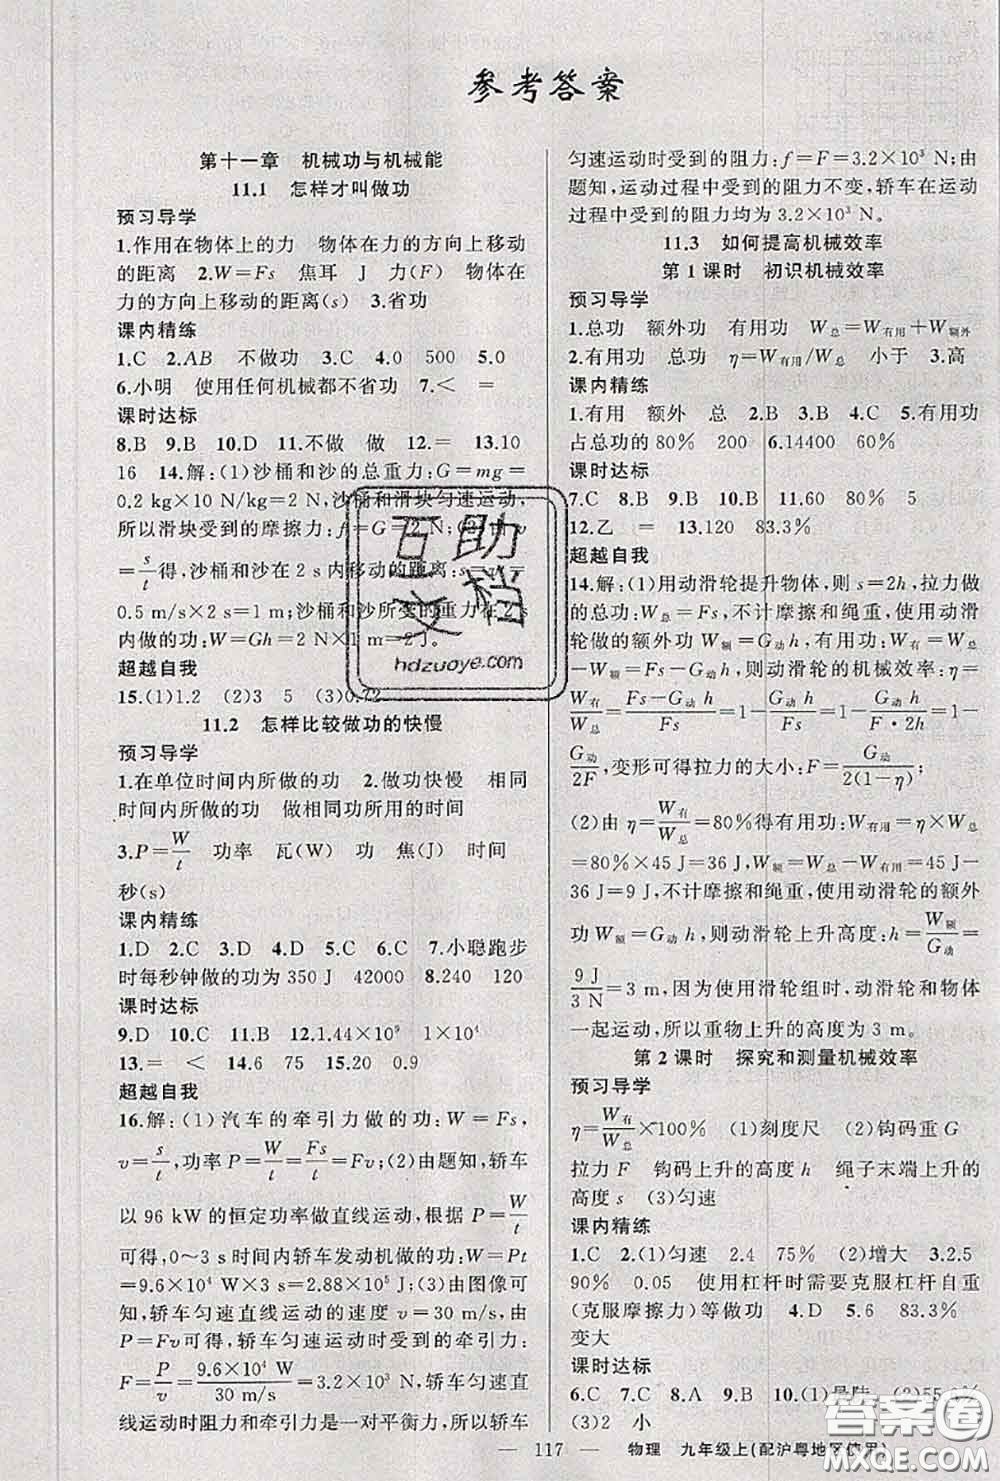 参考答案
第十一章 机械功与机械能
11.1 怎样才叫做功
预习导学
1.作用在物体上的力 物体在力的方向上移动
的距离 2.W=Fs 焦耳 J 力(F) 物体在
力的方向上移动的距离(s) 3.省功
课内精练
1.C 2.AB 不做功 3.C 4.0 500 5.0
6.小明 使用任何机械都不省功 7.< =
课时达标
8.B 9.B 10.D 11.不做 做 12.= 13.10
16 14.解:(1)沙桶和沙的总重力:G=mg=
0.2 kg×10 N/kg=2 N,沙桶和滑块匀速运动,
所以滑块受到的摩擦力:f=G=2 N;(2)由 v
=s/t得,沙桶和沙在 2 s内移动的距离:s=vt=
0.5 m/s×2 s=1 m;沙桶和沙所受的重力在 2 s
内做的功:W=Gh=2 N×1 m=2 J。
超越自我
15.(1)1.2 (2)3 5 (3)0.72
11.2 怎样比较做功的快慢
预习导学
1.在单位时间内所做的功 2.做功快慢 相同
时间内所做的功 做相同功所用的时间
3.P=W/t 功率 瓦(W) 功 焦(J) 时间
秒(s)
课内精练
1.D 2.C 3.D 4.D 5.C 6.C 7.小聪跑步
时每秒钟做的功为 350 J 42000 8.240 120
课时达标
9.D 10.C 11.B 12.1.44×10⁹ 1×10⁴
13.= < 14.6 75 15.20 0.9
超越自我
16.解:(1)汽车的牵引力做的功:W=Fs,
v=s/t,功率 P=W/t=Fs/t=Fv;(2)由题知,轿车
以 96 kW 的恒定功率做直线运动,根据 P=W/t
可得,0~3 s时间内轿车发动机做的功:W=Pt
=9.6×10⁴ W×3 s=2.88×10⁵ J;(3)由图像可
知,轿车匀速直线运动的速度 v=30 m/s,由
P=Fv可得,轿车匀速运动时受到的牵引力:
F=P/v=9.6×10⁴ W/30 m/s=3.2×10³ N,轿车匀速直
线运动时阻力和牵引力是一对平衡力,所以轿车
匀速运动时受到的阻力:f=F=3.2×10³ N;由
题知,运动过程中受到的阻力不变,轿车在运动
过程中受到的阻力均为 3.2×10³ N。
11.3 如何提高机械效率
第 1 课时 初识机械效率
预习导学
1.总功 额外功 有用功 W总=W有用+W额外
2.有用功 总功 η=W有用/W总 小于 3.高
课内精练
1.有用 额外 总 2.B 3.B 4.C 5.有用功
占总功的 80% 200 6.14400 60%
课时达标
7.C 8.B 9.B 10.B 11.60 80% 5
12.乙 = 13.120 83.3%
超越自我
14.解:(1)用动滑轮提升物体,则 s=2h,拉力做
的总功:W总=Fs,不计摩擦和绳重,使用动滑
轮做的额外功 W额=G动h,有用功:W有=W总
-W额=Fs-G动h,则动滑轮的机械效率:η=
W有/W总=(Fs-G动h)/Fs=1-G动h/Fs=1-G动h/(F·2h)=1-
G动/2F,变形可得拉力的大小:F=G动/2(1-η);
(2)由 η=W有/W总=80%得有用功:W有用=η×W总
=80%×45 J=36 J,W额=W总-W有用=45 J-
36 J=9 J,不计摩擦和绳重,使用动滑轮的额外
功 W额=G动h,则动滑轮上升高度:h=W额/G动=
9 J/3 N=3 m,因为使用滑轮组时,动滑轮和物体
一起运动,所以重物上升的高度为 3 m。
第 2 课时 探究和测量机械效率
预习导学
η=W有/W总×100% (1)刻度尺 (2)钩码重 G
拉力 F 钩码上升的高度 h 绳子末端上升的
高度 s (3)匀速
课内精练
1.C 2.(1)匀速 2.4 75% (2)增大 3.2.5
90% 0.05 使用杠杆时需要克服杠杆自重
(克服摩擦力)等做功 4.D 5.6 83.3%
变大
课时达标
6.C 7.C 8.A 9.B 10.(1)晏陆 (2)55.6%
(3)2 小
— 117 — 物理 九年级上(配沪粤地区使用)
互助
文档
hdzuoye.com
答案圈